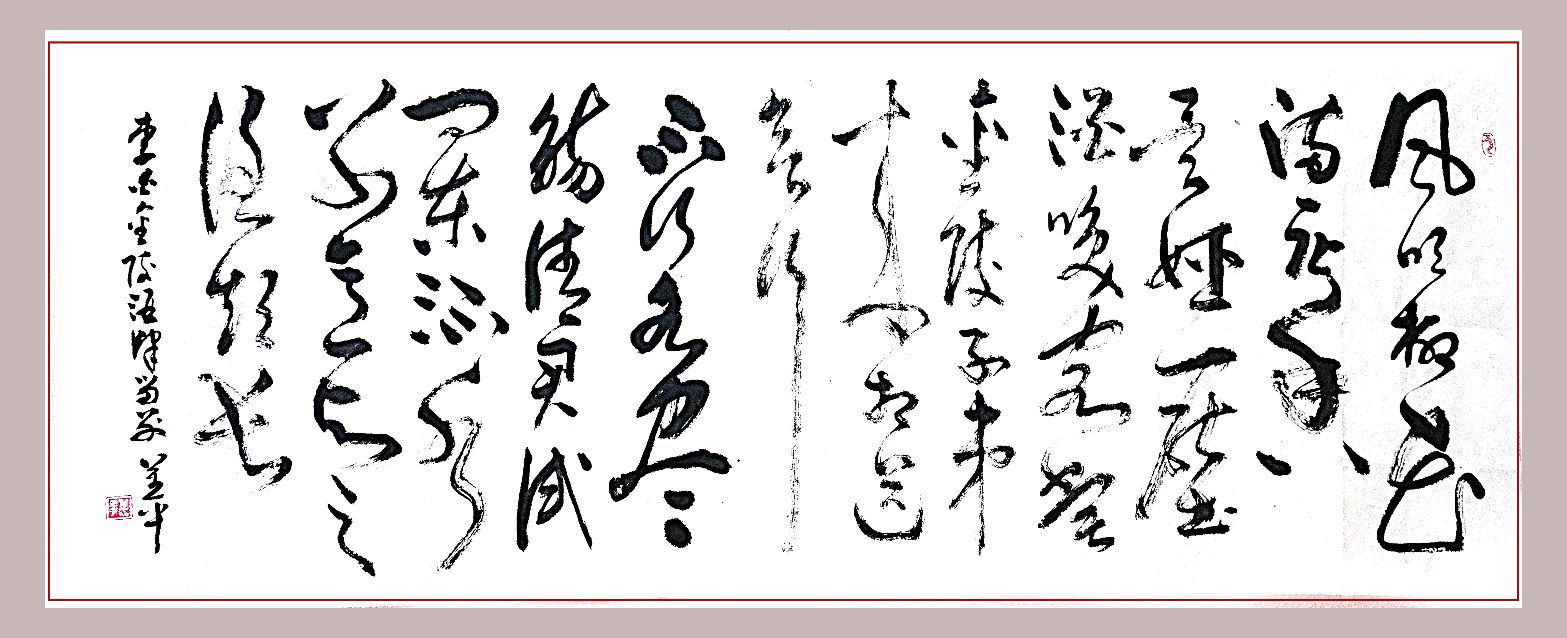 风吹柳花
满店香
吴姬压
酒唤客尝
金陵子弟
来相送
欲行
不行各尽
觞请君试
问东流水
别意与之
谁短长
李白金陵酒肆留别